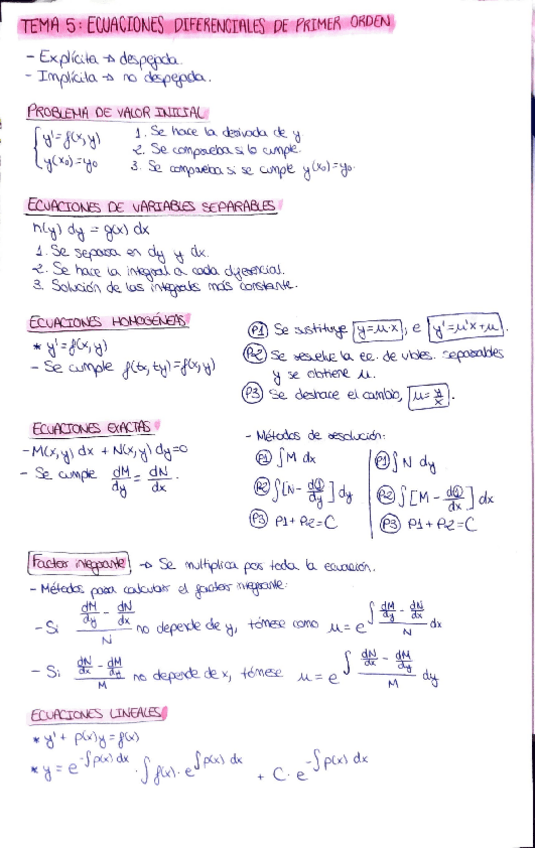 TEMA 5: ECUACIONES DIFERENCIALES DE PRIMER ORDEN
- Explícita → despejada.
- Implícita → no despejada.
PROBLEMA DE VALOR INICIAL
{ y' = f(x, y)
y(x₀) = y₀
1. Se hace la derivada de y
2. Se comprueba si lo cumple.
3. Se comprueba si se cumple y(x₀) = y₀.
ECUACIONES DE VARIABLES SEPARABLES
h(y) dy = g(x) dx
1. Se separa en dy y dx.
2. Se hace la integral a cada diferencial.
3. Solución de las integrales más constante.
ECUACIONES HOMOGÉNEAS
* y' = f(x, y)
- Se cumple f(tx, ty) = f(x, y)
P1 Se sustituye y = μ·x, e y' = μ'x + μ.
P2 Se resuelve la ec. de vbles. separables
y se obtiene μ.
P3 Se deshace el cambio, μ = y/x.
ECUACIONES EXACTAS
- M(x, y) dx + N(x, y) dy = 0
- Se cumple dM/dy = dN/dx.
- Métodos de resolución:
P1 ∫ M dx
P2 ∫ [N - d①/dy] dy
P3 P1 + P2 = C
P1 ∫ N dy
P2 ∫ [M - d①/dx] dx
P3 P1 + P2 = C
Factor integrante → Se multiplica por toda la ecuación.
- Métodos para calcular el factor integrante:
- Si (dM/dy - dN/dx)/N no depende de y, tómese como μ = e^∫ (dM/dy - dN/dx)/N dx
- Si (dN/dx - dM/dy)/M no depende de x, tómese μ = e^∫ (dN/dx - dM/dy)/M dy
ECUACIONES LINEALES
* y' + p(x)y = f(x)
* y = e^-∫p(x) dx · ∫ f(x) · e^∫p(x) dx + C · e^-∫p(x) dx